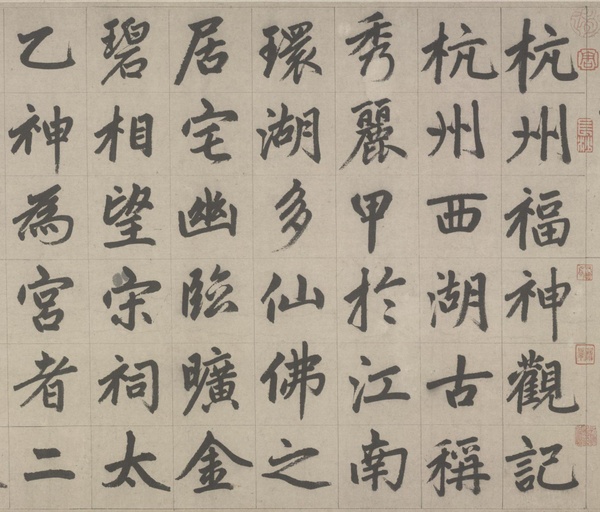 杭州福神觀記
杭州西湖古稱
秀麗甲於江南
環湖多仙佛之
居宅幽臨曠金
碧相望宋祠太
乙神為宮者二